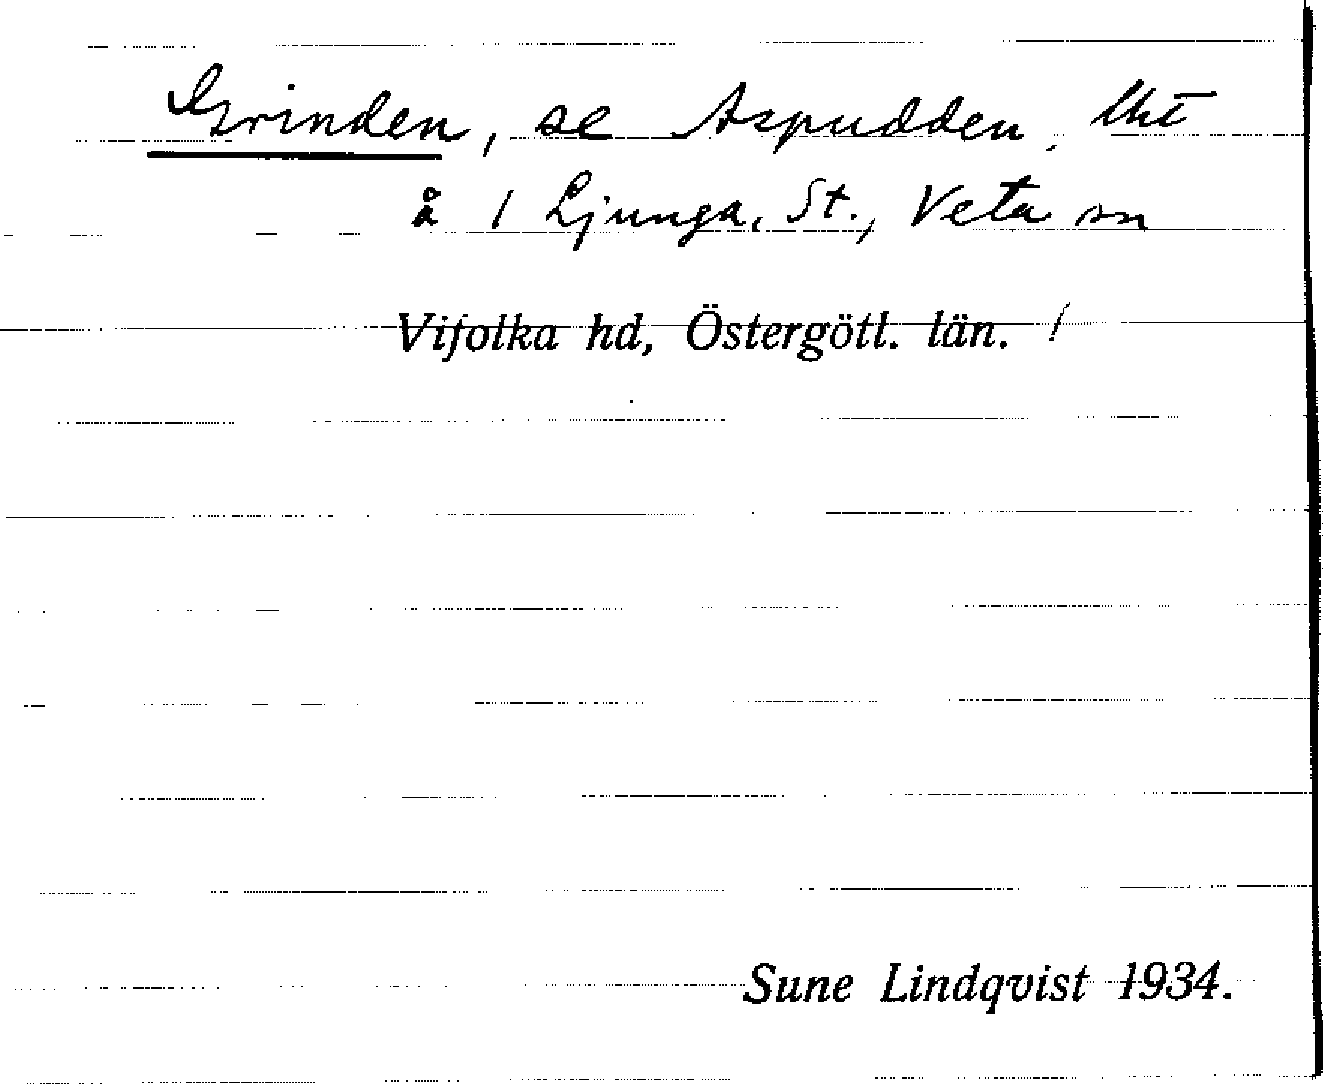 Grinden, se Aspudden, lht
å 1 Ljunga, St., Veta sn
Vifolka hd, Östergötl. län.
Sune Lindqvist 1934.